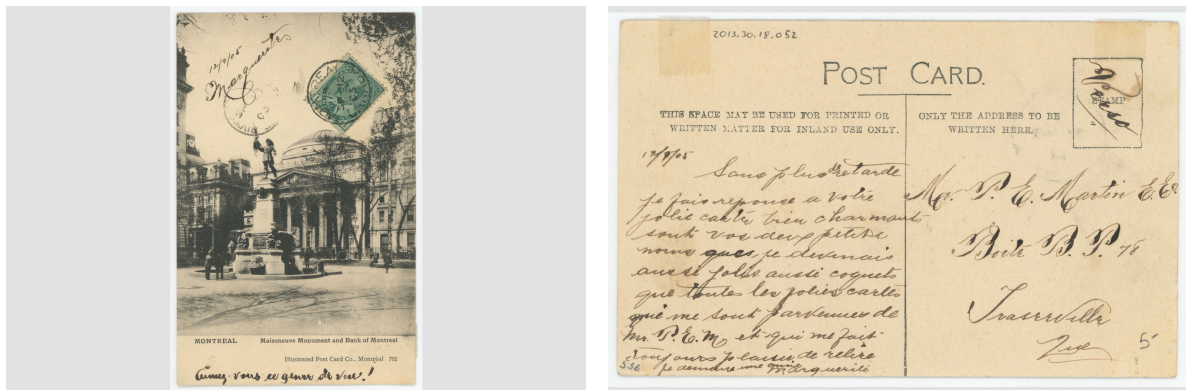 12/9/05
Marguerite
MONTREAL Maisoneuve Monument and Bank of Montreal
Illustrated Post Card Co., Montreal 702
Aimez-vous ce genre de vue!
2013.30.18.052
POST CARD.
THIS SPACE MAY BE USED FOR PRINTED OR
WRITTEN MATTER FOR INLAND USE ONLY.
ONLY THE ADDRESS TO BE
WRITTEN HERE.
STAMP
Verso
12/9/05
Sans plus de retarde
je fais reponse a votre
jolie carte bien charmants
sont vos deux petits
noms ques je devinais
aussi jolis aussi coquets
que toutes les jolies cartes
qui me sont parvenues de
Mr. P. E. M et qui me fait
toujours plaisir de relire
je demeure une amie
Marguerite
536
Mr. P. E. Martin E.Er
Boite B. P. 78
Fraserville
Que
5